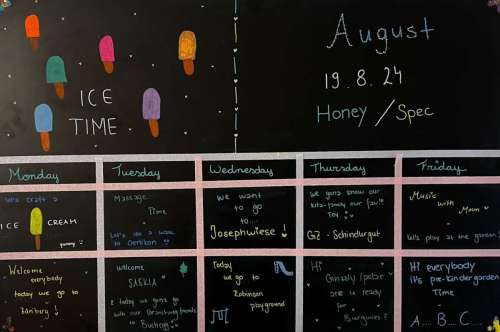 ICE
TIME
August
19.8.24
Honey / Spec
Monday
Tuesday
Wednesday
Thursday
Friday
ICE CREAM
yummy
Massage
Time
Let's do a walk
to Oerlikon!
we want
to go
to...
Josephwiese!
we gonna show our
our fav!!
Toy!!
GZ - Schindlergut
Music
with
Mom
let's play at the garden!
Welcome
everybody
today we go to
welcome
SASKIA
today we gonna go
with our
to Bucheggi!
Today
we go to
Robinson
playground
Hi
Grizzly/polar
are u ready
for
Hi everybody
it's pre-kindergarden
Time
A... B... C...